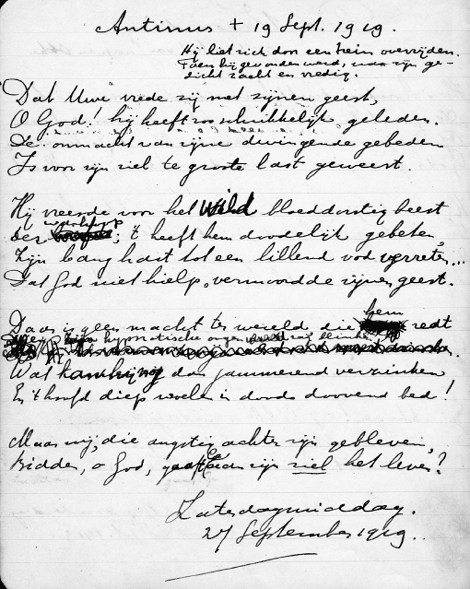 Antinus + 19 Sept. 1919.
Hij liet zich door een trein overrijden.
Toen hij gevonden werd, was zijn ge-
dicht zacht en vredig.
Dat Uwe vrede zij met zijnen geest,
O God! hij heeft zoo schrikkelijk geleden.
De onmacht van zijne dwingende gebeden
Is voor zijn ziel te groote last geweest.
Hij vreesde voor het wild bloeddorstig beest
der wanhoop; 't heeft hem doodelijk gebeten,
Zijn bang hart tot een lillend vod vervreten...
Dat God niet hielp, vermoordde zijnen geest.
Daar is geen macht ter wereld die hem redt
hypnotische oogen
Wat kan hij nog dan jammerend verzinken
En 't hoofd diep voelen in doods doovend bed!
Maar wij, die angstig achter zijn gebleven,
Bidden, o God, gaaft Ge aan zijn ziel het leven?
Zaterdagmiddag.
27 September 1919.